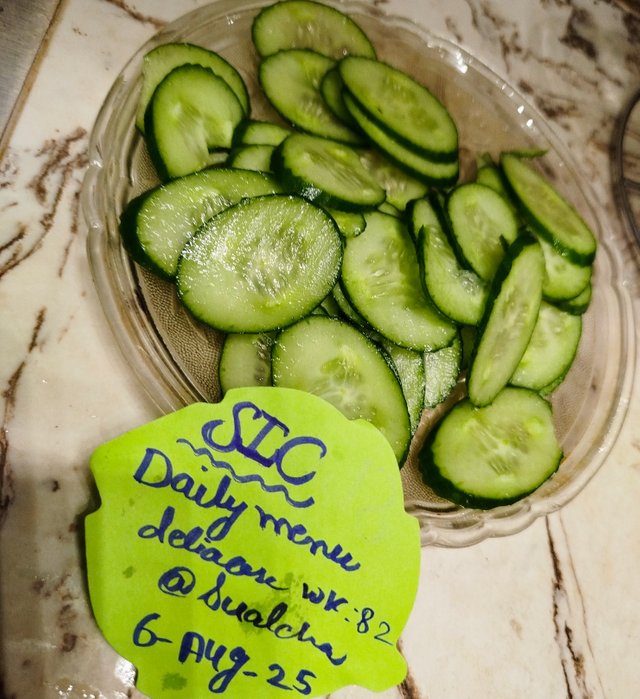 SIC
Daily menu
wk:82
@
6-Aug-25